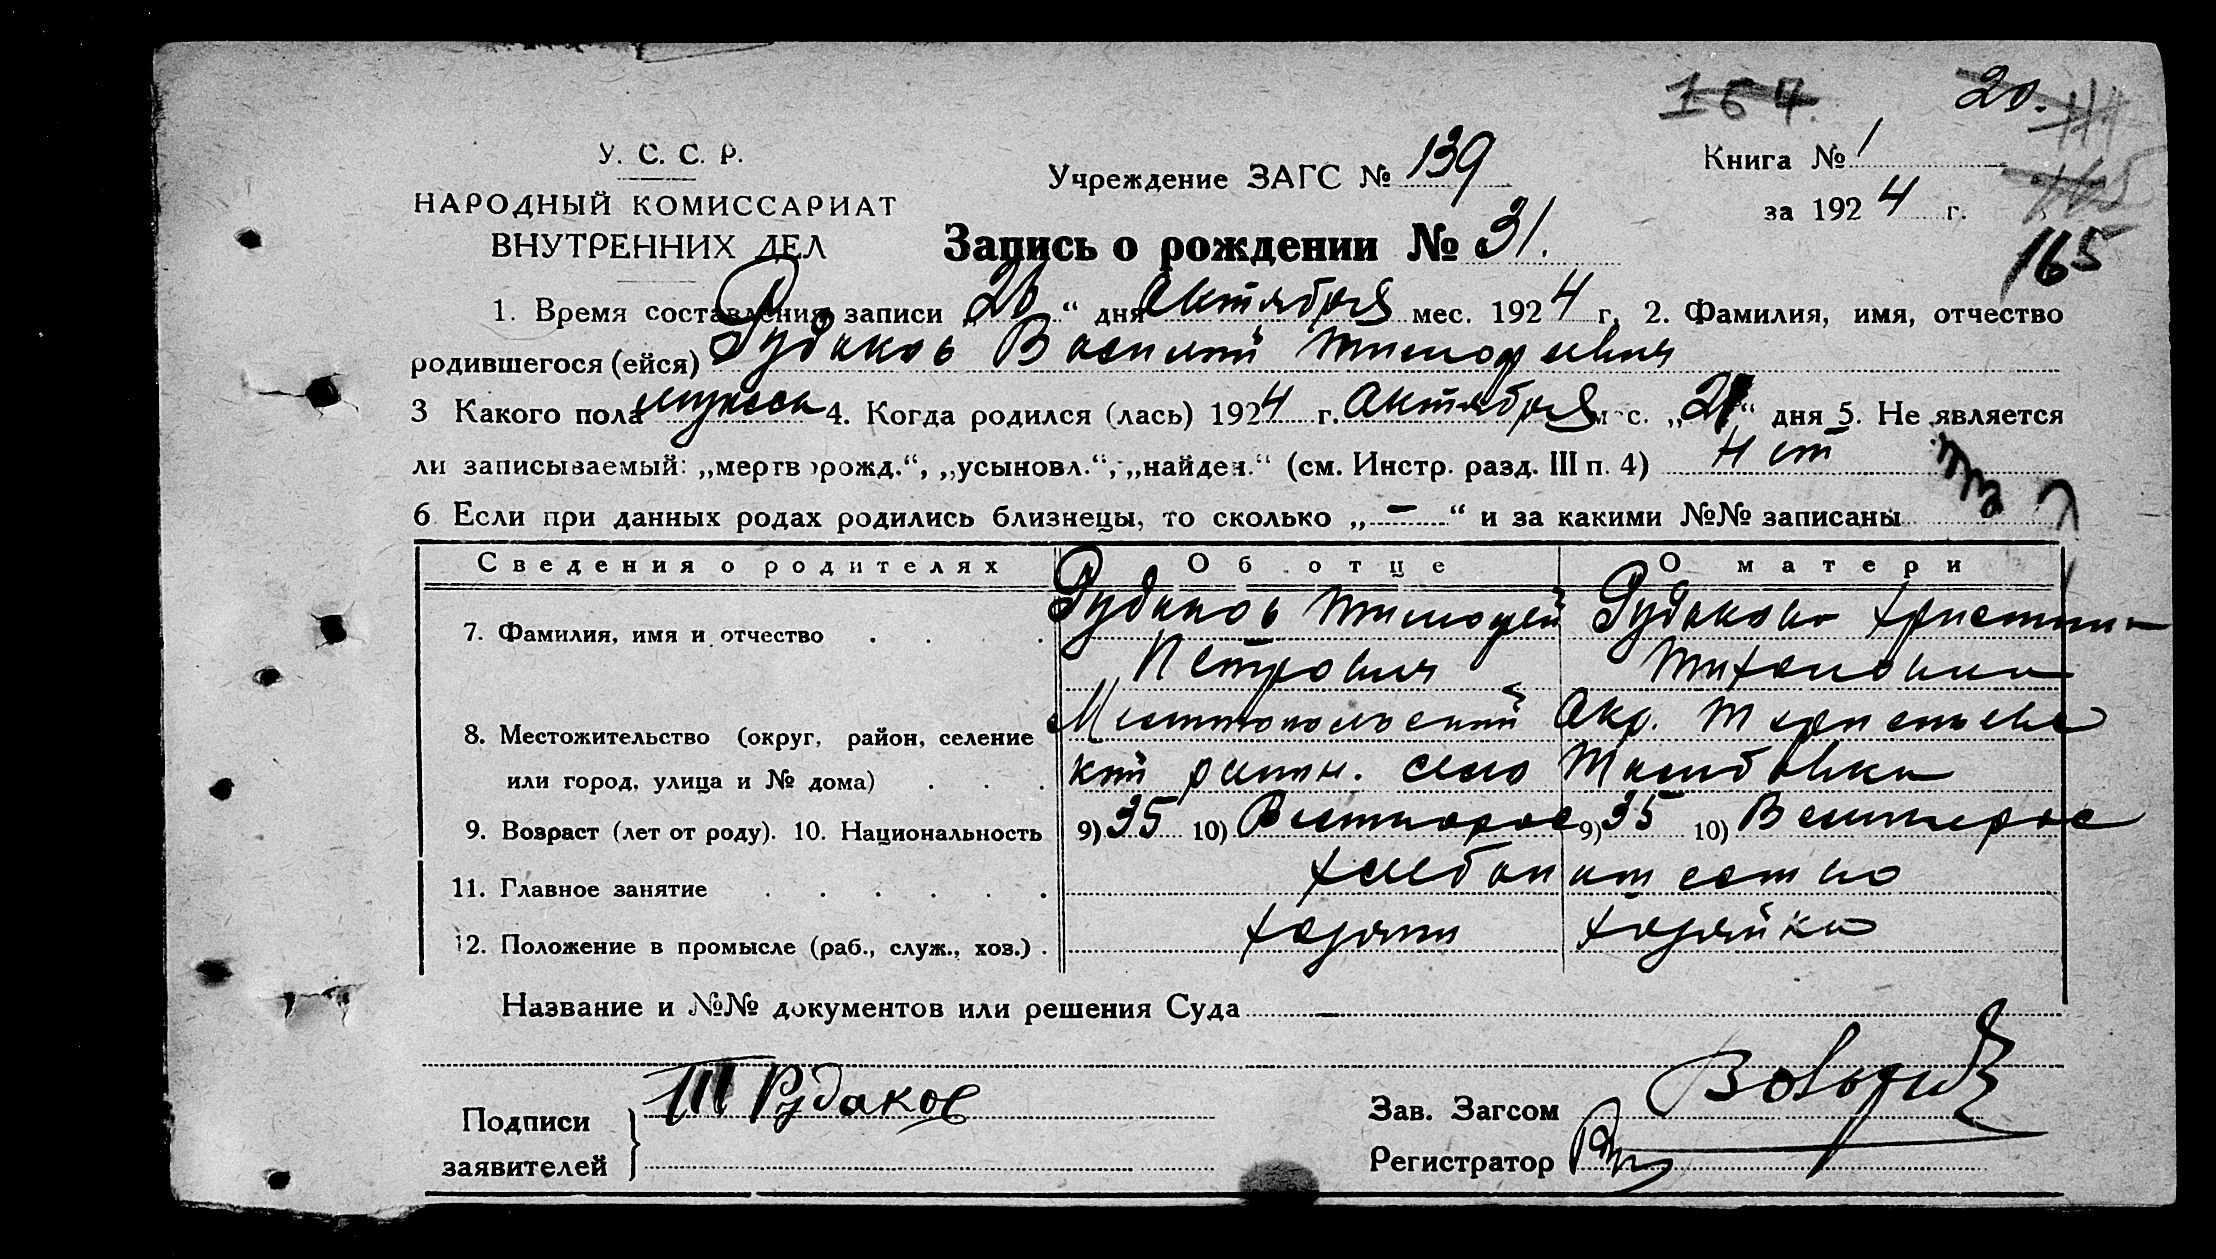 164. 20. 114
У. С. С. Р. Учреждение ЗАГС № 139 Книга № 1 115
НАРОДНЫЙ КОМИССАРИАТ за 1924 г.
ВНУТРЕННИХ ДЕЛ Запись о рождении № 31. 165
1. Время составления записи „26“ дня Октября мес. 1924 г. 2. Фамилия, имя, отчество
родившегося (ейся) Рудаков Василий Тимофеевич
3 Какого пола мужск 4. Когда родился (лась) 1924 г. Октября мес. „21“ дня 5. Не является
ли записываемый: „мертворожд.“, „усыновл.“, „найден.“ (см. Инстр. разд. III п. 4) Нет
6. Если при данных родах родились близнецы, то сколько „—“ и за какими №№ записаны
Сведения о родителях Об отце О матери
7. Фамилия, имя и отчество Рудаков Тимофей Рудакова Христина
Петрович Тихоновна
8. Местожительство (округ, район, селение Мелитопольский Окр. Терпеньевс
или город, улица и № дома) кий район. село
9. Возраст (лет от роду). 10. Национальность 9) 35 10) 9) 35 10)
11. Главное занятие хлебопашество
12. Положение в промысле (раб., служ., хоз.) хозяин хозяйка
Название и №№ документов или решения Суда —
Подписи Т Рудаков Зав. Загсом
заявителей Регистратор